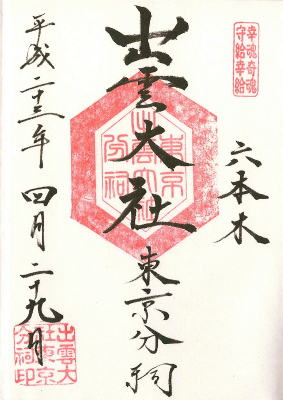 幸魂奇魂
守給幸給
六本木
出雲大社
東京分祠
東京
出雲大社
分祠
平成二十三年四月二十九日
出雲大
社東京
分祠印